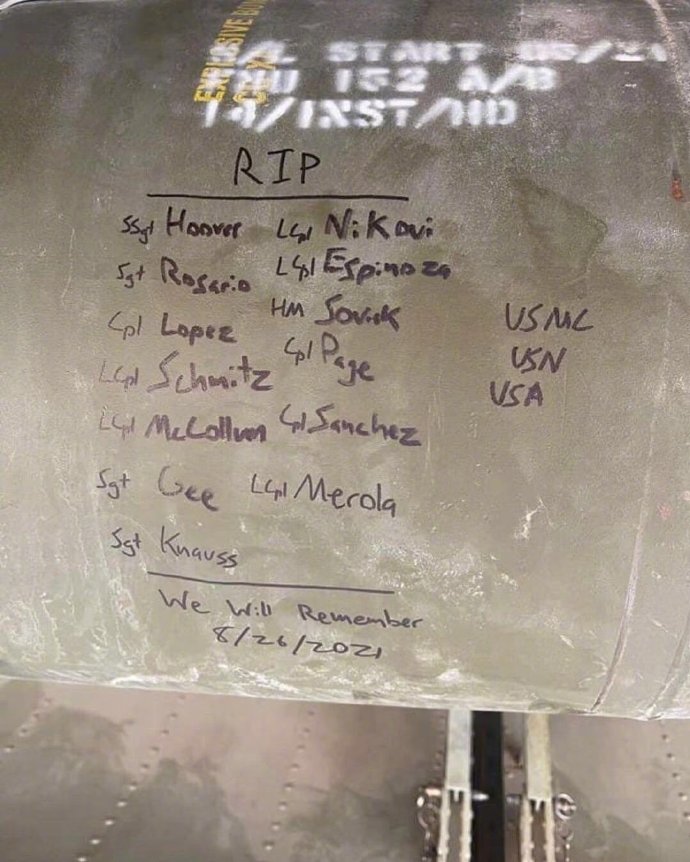 EXPLOSIVE
START 05/21
152 A/B
/INST/HD
RIP
SSgt Hoover LCpl Nikoui
Sgt Rosario LCpl Espinoza
Cpl Lopez HM Soviak USMC
LCpl Schmitz Cpl Page USN
LCpl McCollum Cpl Sanchez USA
Sgt Gee LCpl Merola
Sgt Knauss
We Will Remember
8/26/2021